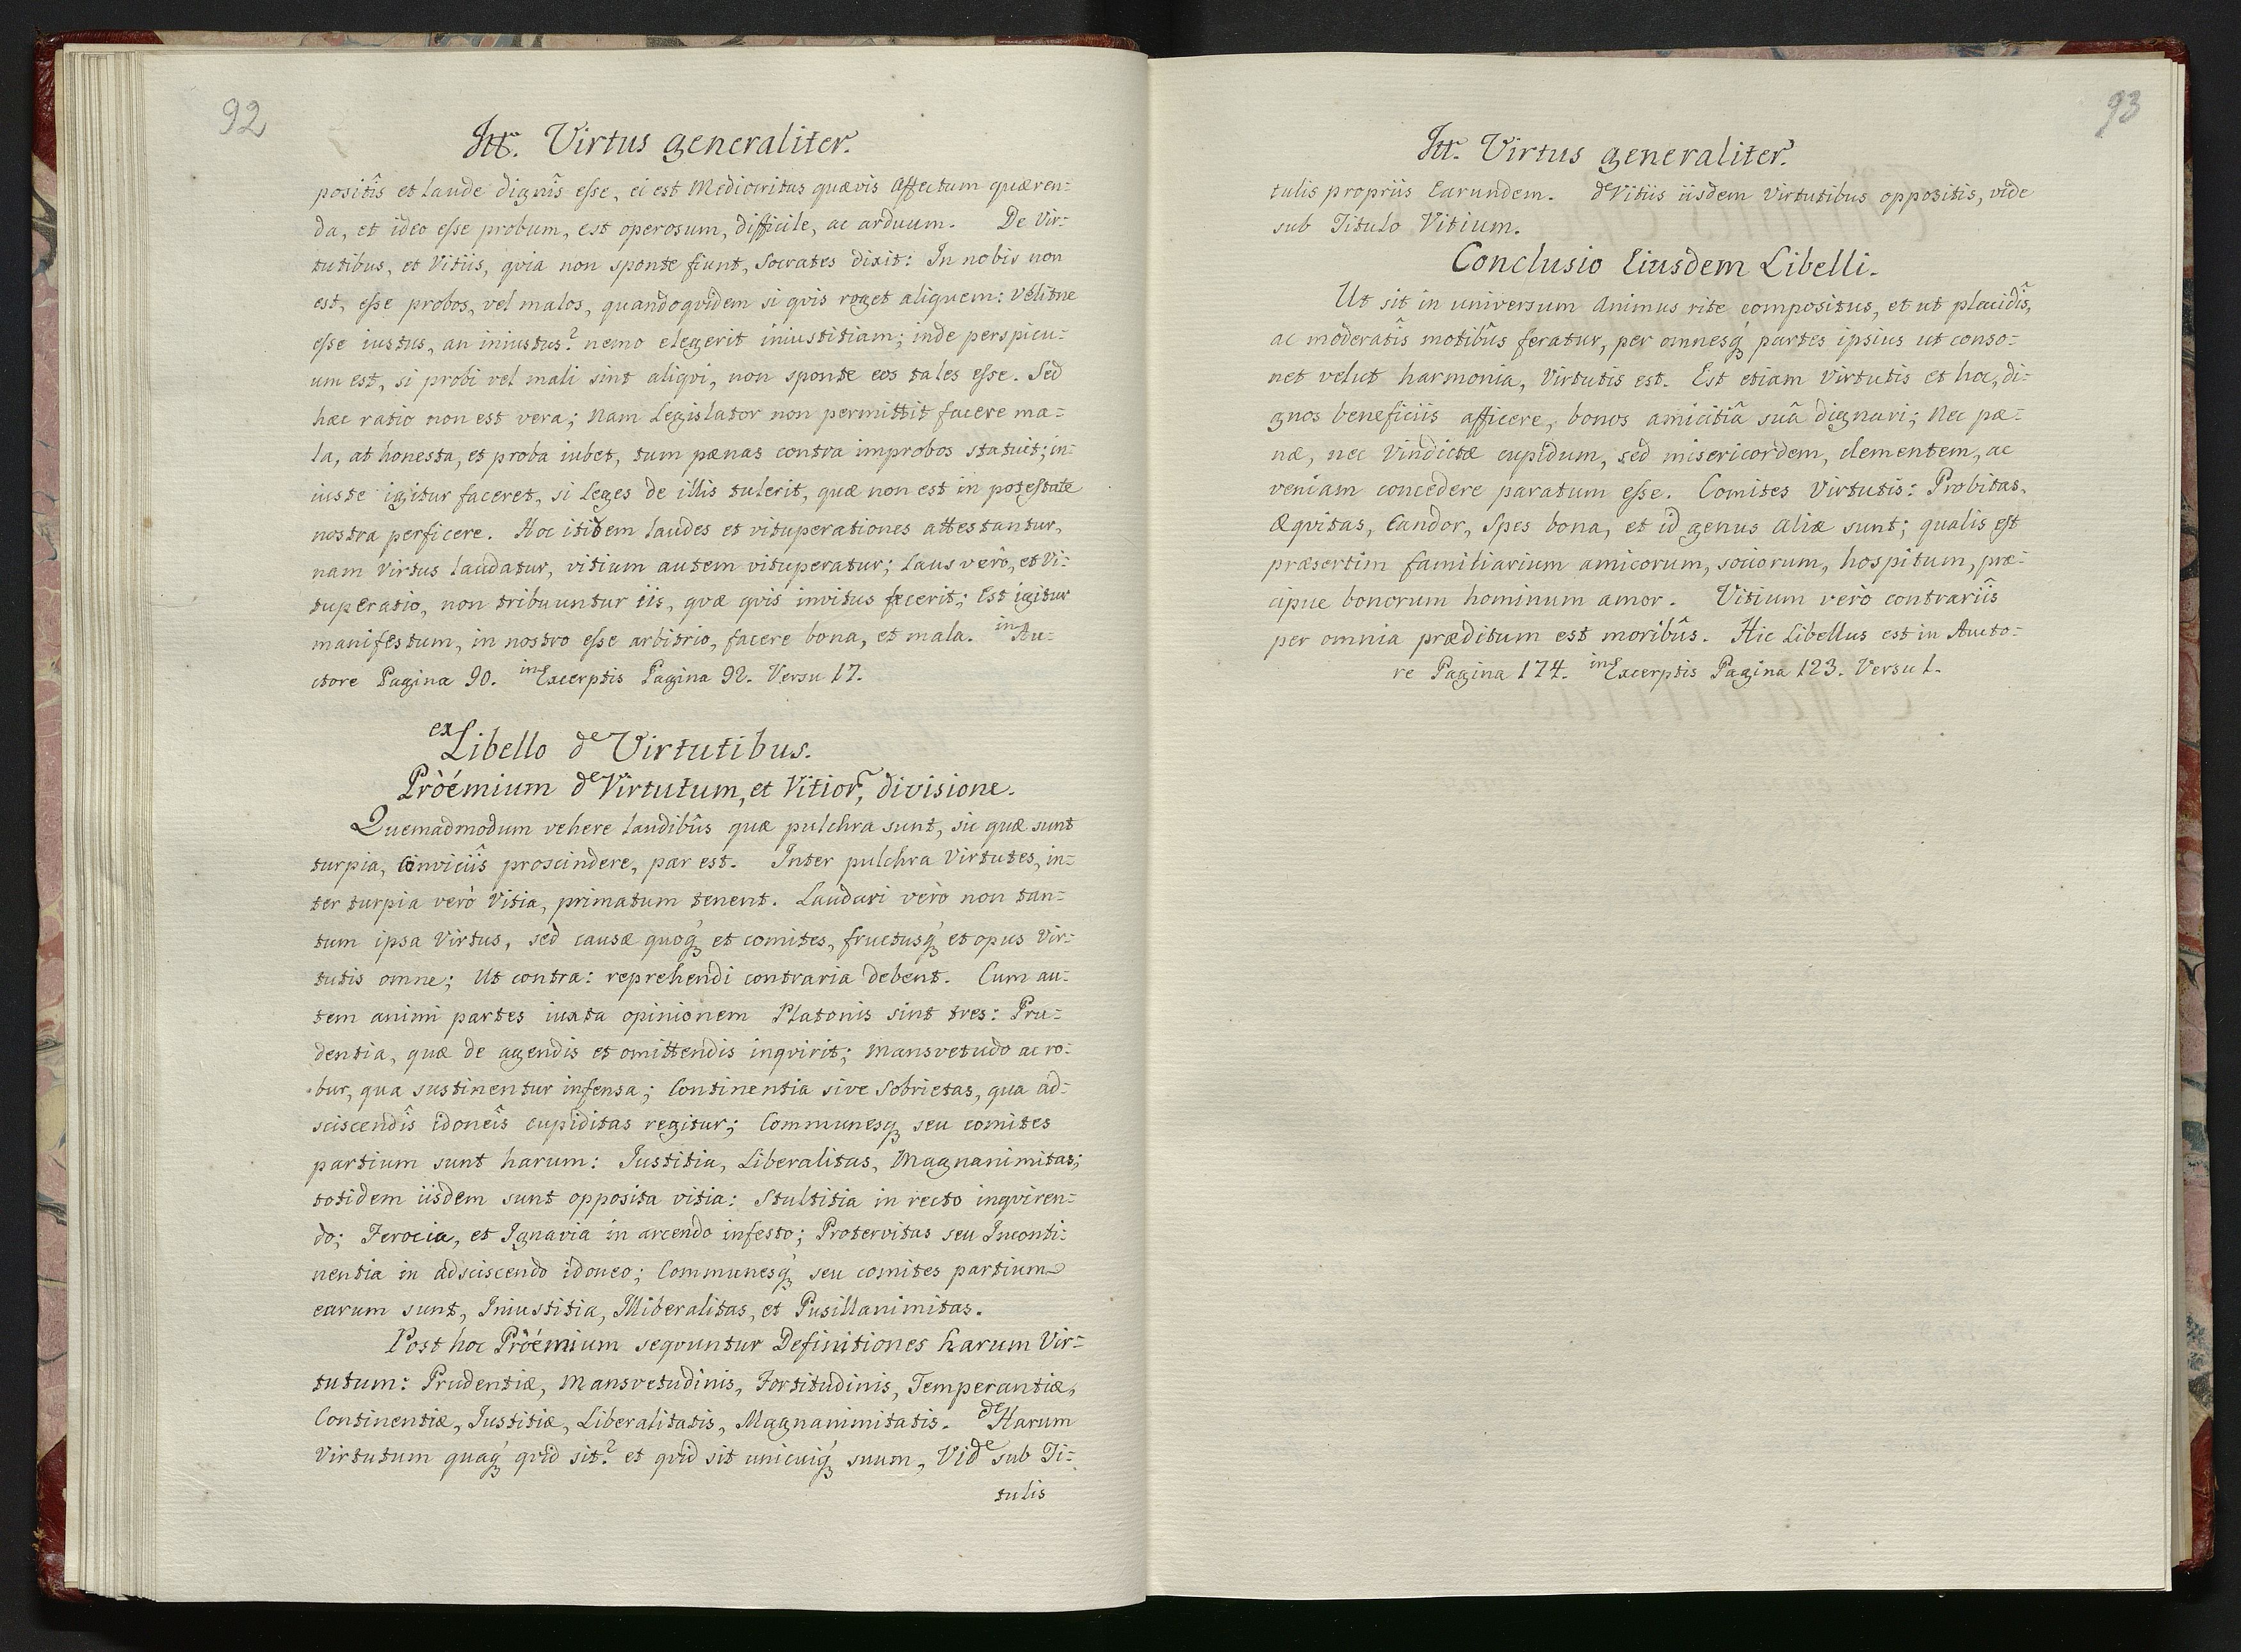 92
Itt. Virtus generaliter.
positîs et laude dignîs esse, ei est Mediocritas quævis Affectum quæren=
da, et ideo esse probum, est operosum, difficile, ac arduum. De Vir=
tutibus, et Vitiis, qvia non sponte fiunt, Socrates dixit: In nobis non
est, esse probos, vel malos, quandoqvidem si qvis roget aliquem: Velitne
esse iustus, an iniustus? nemo elegerit iniustitiam; inde perspicu=
um est, si probi vel mali sint aliqvi, non sponte eos tales esse. Sed
hæc ratio non est vera; Nam Legislator non permittit facere ma=
la, at honesta, et proba iubet, tum pænas contra improbos statuit; in=
iuste igitur faceret, si Leges de illis tulerit, quæ non est in potestate
nostra perficere. Hoc itidem laudes et vituperationes attestantur,
nam Virtus laudatur, vitium autem vituperatur; Laus verò, et Vi=
tuperatio, non tribuuntur iis, qvæ qvis invitus fecerit; Est igitur
manifestum, in nostro esse arbitrio, facere bona, et mala. in Au=
ctore Pagina 90. in Excerptis Pagina 92. Versu 17.
ex Libello de Virtutibus.
Pròémium de Virtutum, et Vitior, divisione.
Quemadmodum vehere laudibûs quæ pulchra sunt, sic quæ sunt
turpia, Conviciîs proscindere, par est. Inter pulchra Virtutes, in=
ter turpia verò Vitia, primatum tenent. Laudari verò non tan=
tum ipsa Virtus, sed causæ quoqꝫ et comites, fructusqꝫ et opus Vir=
tutis omne; Ut contra: reprehendi contraria debent. Cum au=
tem animi partes iuxta opinionem Platonis sint tres: Pru=
dentia, quæ de agendis et omittendis inqvirit; Mansvetudo ac ro=
bur, qua sustinentur infensa; Continentia sive Sobrietas, qua ad=
sciscendîs idoneîs cupiditas regitur; Communesqꝫ seu comites
partium sunt harum: Iustitia, Liberalitas, Magnanimitas;
totidem iisdem sunt opposita vitia: Stultitia in recto inqviren=
do; Ferocia, et Ignavia in arcendo infesto; Protervitas seu Inconti=
nentia in adsciscendo idoneo; Communesqꝫ seu comites partium
earum sunt, Iniustitia, Illiberalitas, et Pusillanimitas.
Post hoc Pròémium seqvuntur Definitiones harum Vir=
tutum: Prudentiæ, Mansvetudinis, Fortitudinis, Temperantiæ,
Continentiæ, Iustitiæ, Liberalitatis, Magnanimitatis. de Harum
Virtutum quaqꝫ qvid sit? et qvid sit unicuiqꝫ suum, Vide sub Ti=
tulis
93
Itt. Virtus generaliter.
tulis propriis Earundem. de Vitiis iisdem Virtutibus oppositis, vide
sub Titulo Vitium.
Conclusio Eiusdem Libelli.
Ut sit in universum Animus rite compositus, et ut placidîs,
ac moderatîs motibûs feratur, per omnesqꝫ partes ipsius ut conso=
net velut harmonia, Virtutis est. Est etiam Virtutis et hoc, di=
gnos beneficiis afficere, bonos amicitiâ suâ dignari; Nec pæ=
næ, nec Vindictæ cupidum, sed misericordem, clementem, ac
veniam concedere paratum esse. Comites Virtutis: Probitas,
Æqvitas, Candor, Spes bona, et id genus Aliæ sunt; qualis est
præsertim familiarium amicorum, sociorum, hospitum, præ=
cipue bonorum hominum amor. Vitium verò contrariîs
per omnia præditum est moribûs. Hic Libellus est in Aucto=
re Pagina 174. in Excerptis Pagina 123. Versu 1.